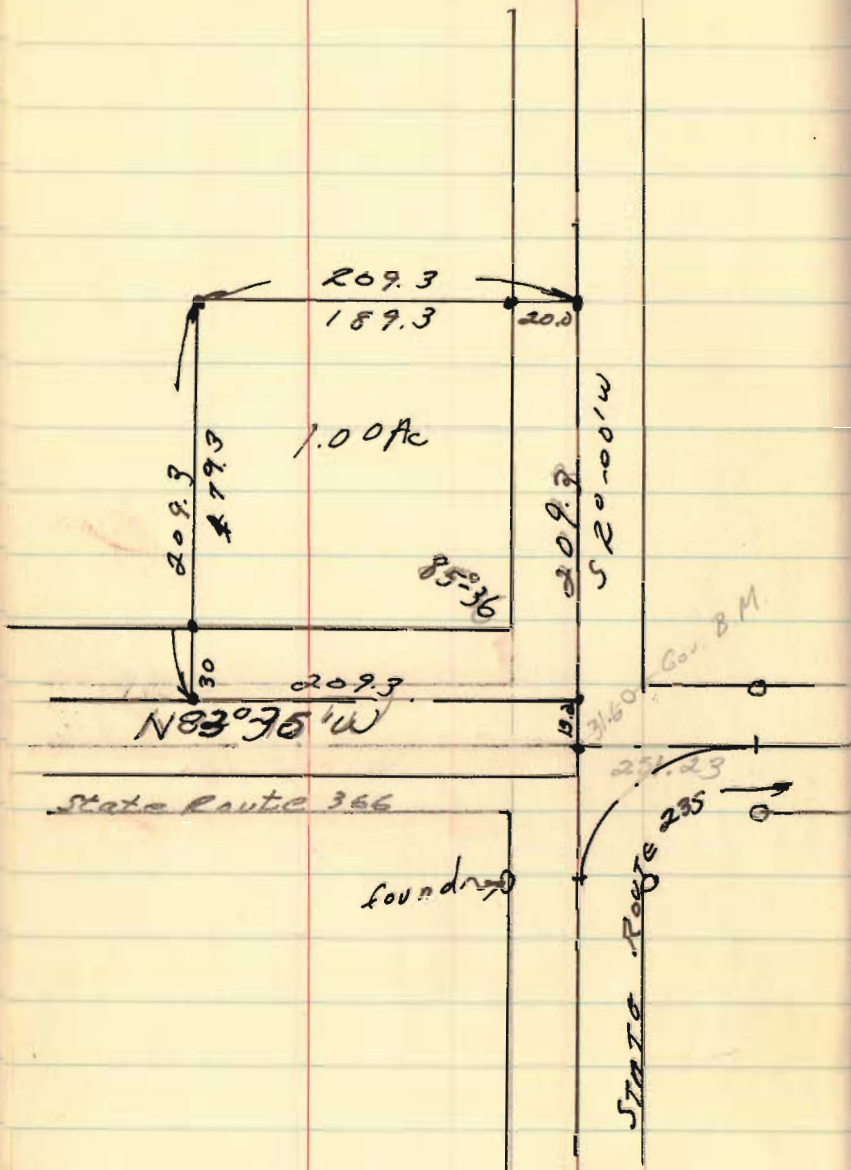 209.3
189.3
20.0
1.00 Ac
209.3
179.3
209.3
S 2°-00' W
85°-36
30
209.3
N83°-35'W
31.60
Gov. B.M.
251.23
State Route 366
State Route 235
found